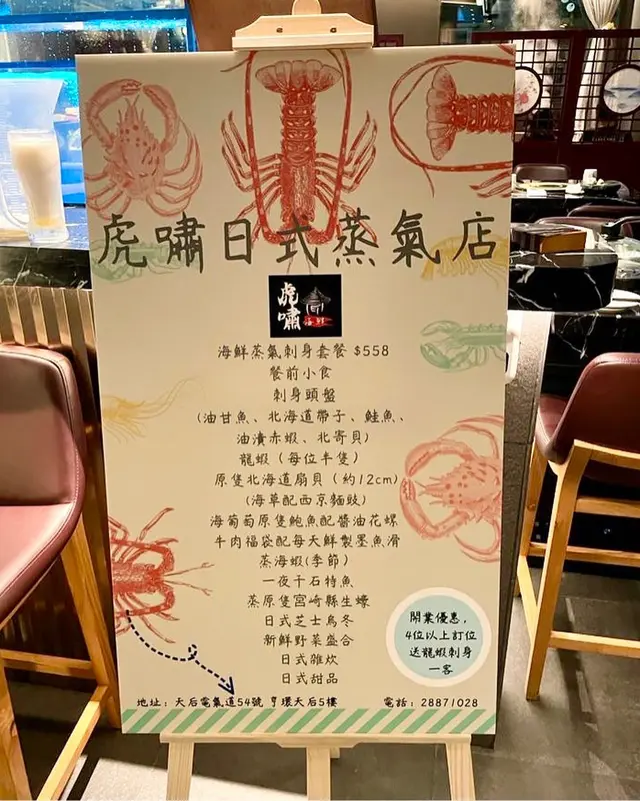 虎嘯日式蒸氣店
虎嘯
海鮮蒸氣刺身套餐 $558
餐前小食
刺身頭盤
(油甘魚、北海道帶子、鮭魚、
油漬赤蝦、北寄貝)
龍蝦 (每位半隻)
原隻北海道扇貝 (約12cm)
(海草配西京麵豉)
海葡萄原隻鮑魚配醬油花螺
牛肉福袋配每天鮮製墨魚滑
蒸海蝦(季節)
一夜干石特魚
蒸原隻宮崎縣生蠔
日式芝士烏冬
新鮮野菜盛合
日式雜炊
日式甜品
開業優惠，
4位以上訂位
送龍蝦刺身
一客
地址：天后電氣道54號 亨環天后5樓
電話：28871028